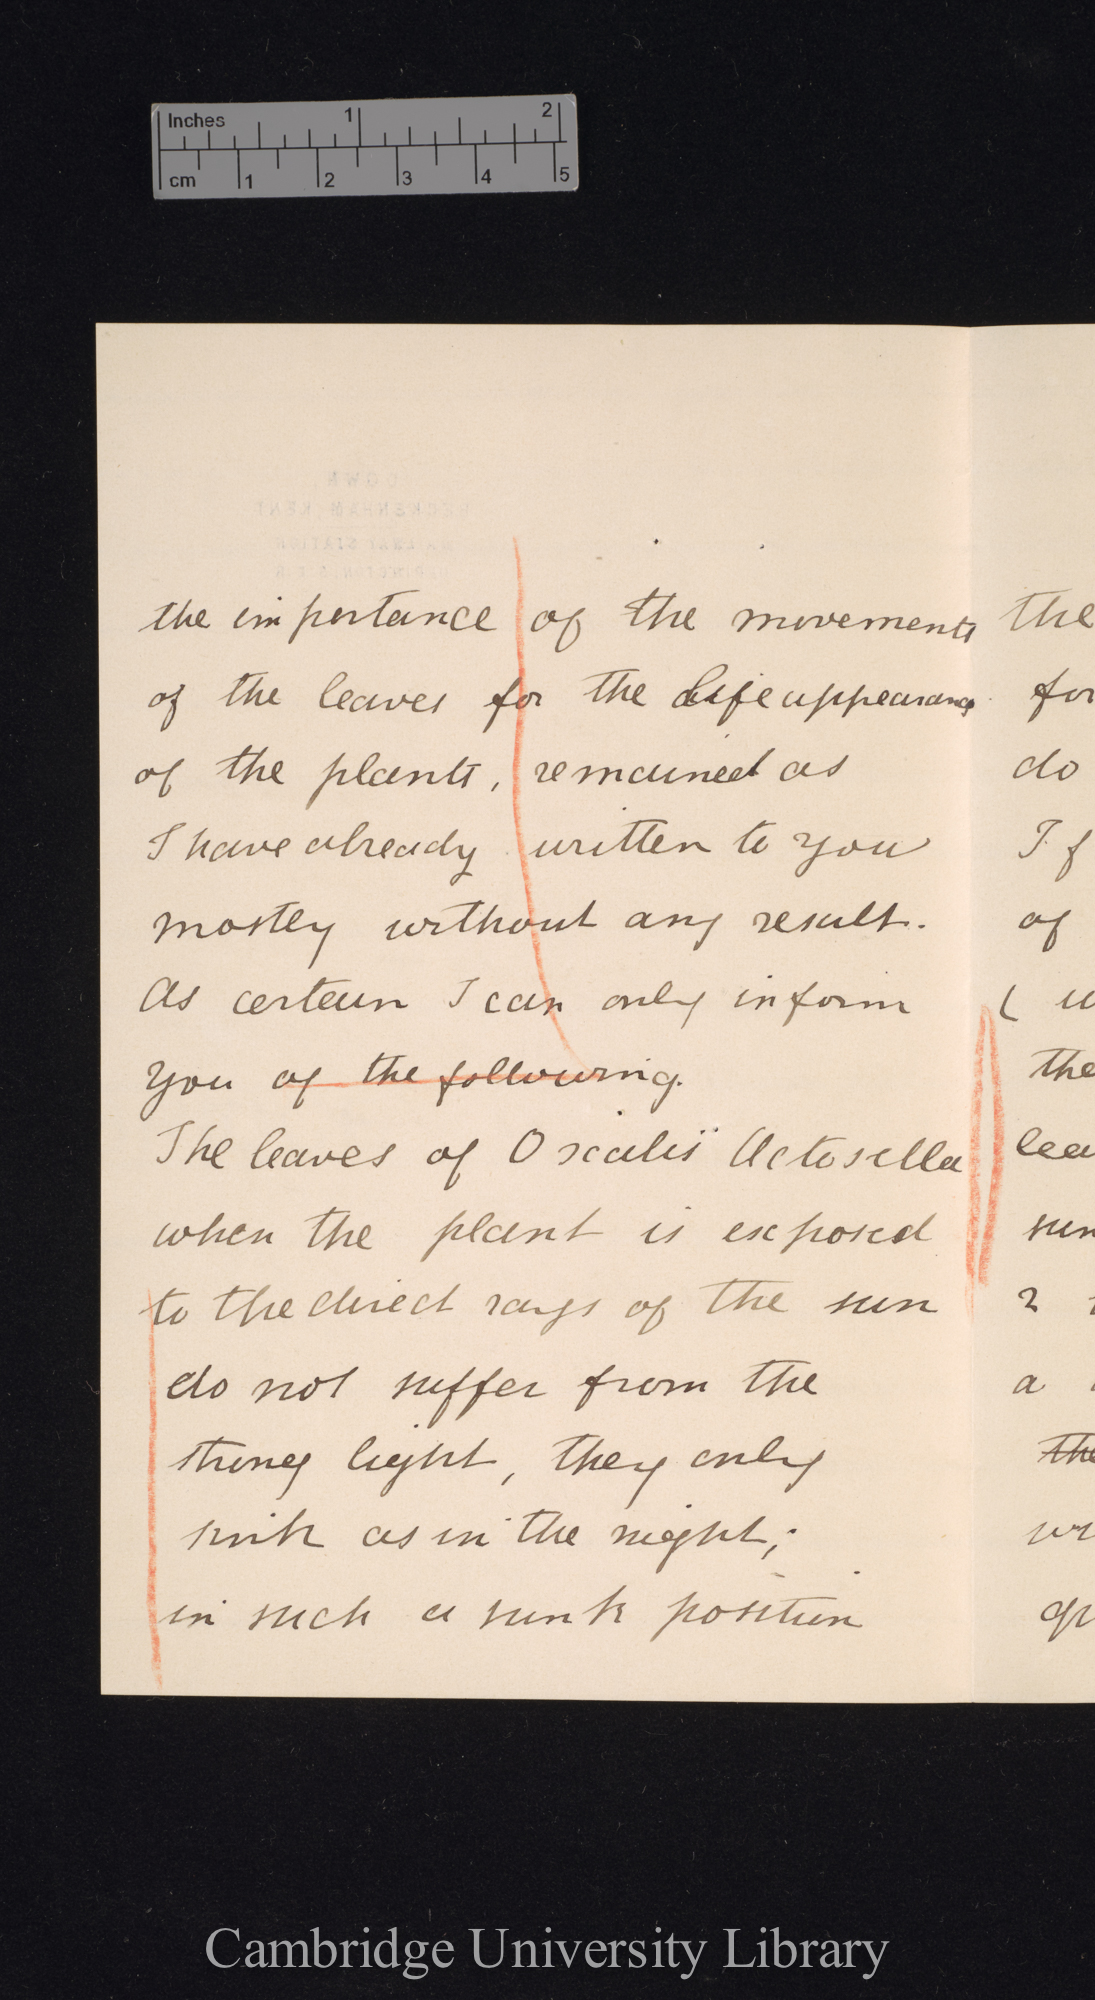 Inches 1 2
cm 1 2 3 4 5
DOWN,
BECKENHAM, KENT
the importance of the movements
of the leaves for the life appearance
of the plants, remained as
I have already written to you
mostly without any result.
As certain I can only inform
you of the following.
The leaves of Oxalis Actosella
when the plant is exposed
to the direct rays of the sun
do not suffer from the
strong light, they only
sink as in the night;
in such a sunk position
the
for
do
If
of
the
lea
sun
2
a
the
Cambridge University Library